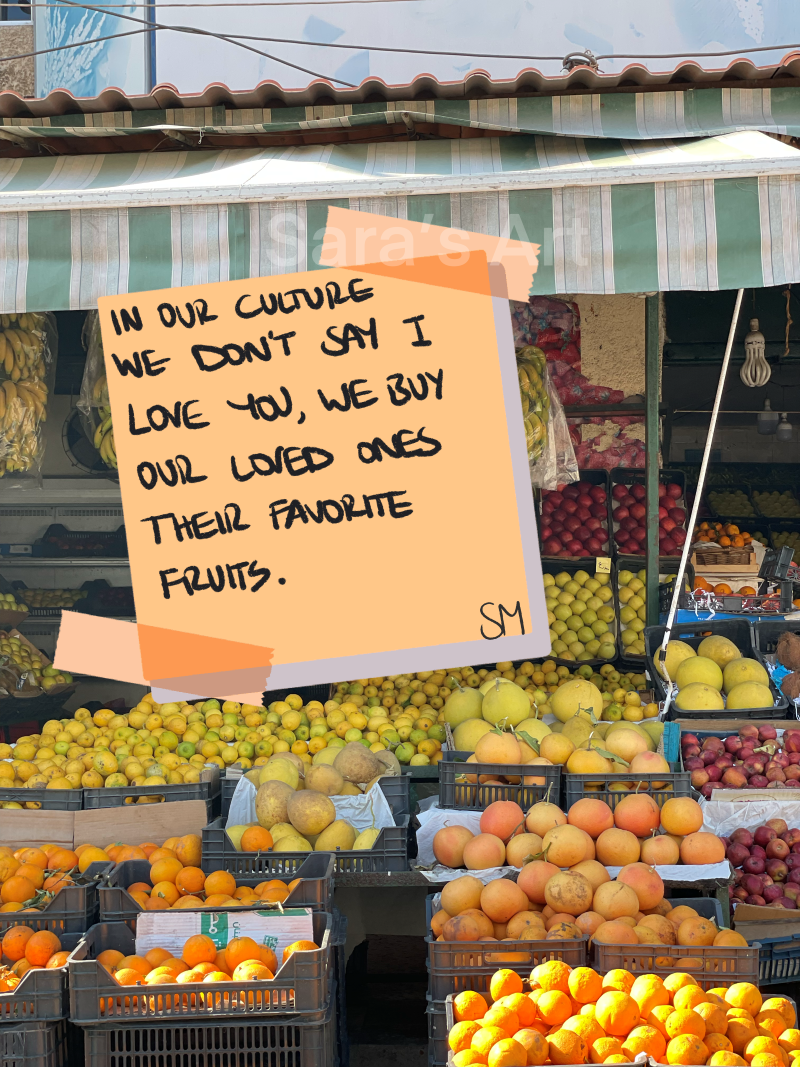 Sara's Art
IN OUR CULTURE
WE DON'T SAY I
LOVE YOU, WE BUY
OUR LOVED ONES
THEIR FAVORITE
FRUITS.
SM